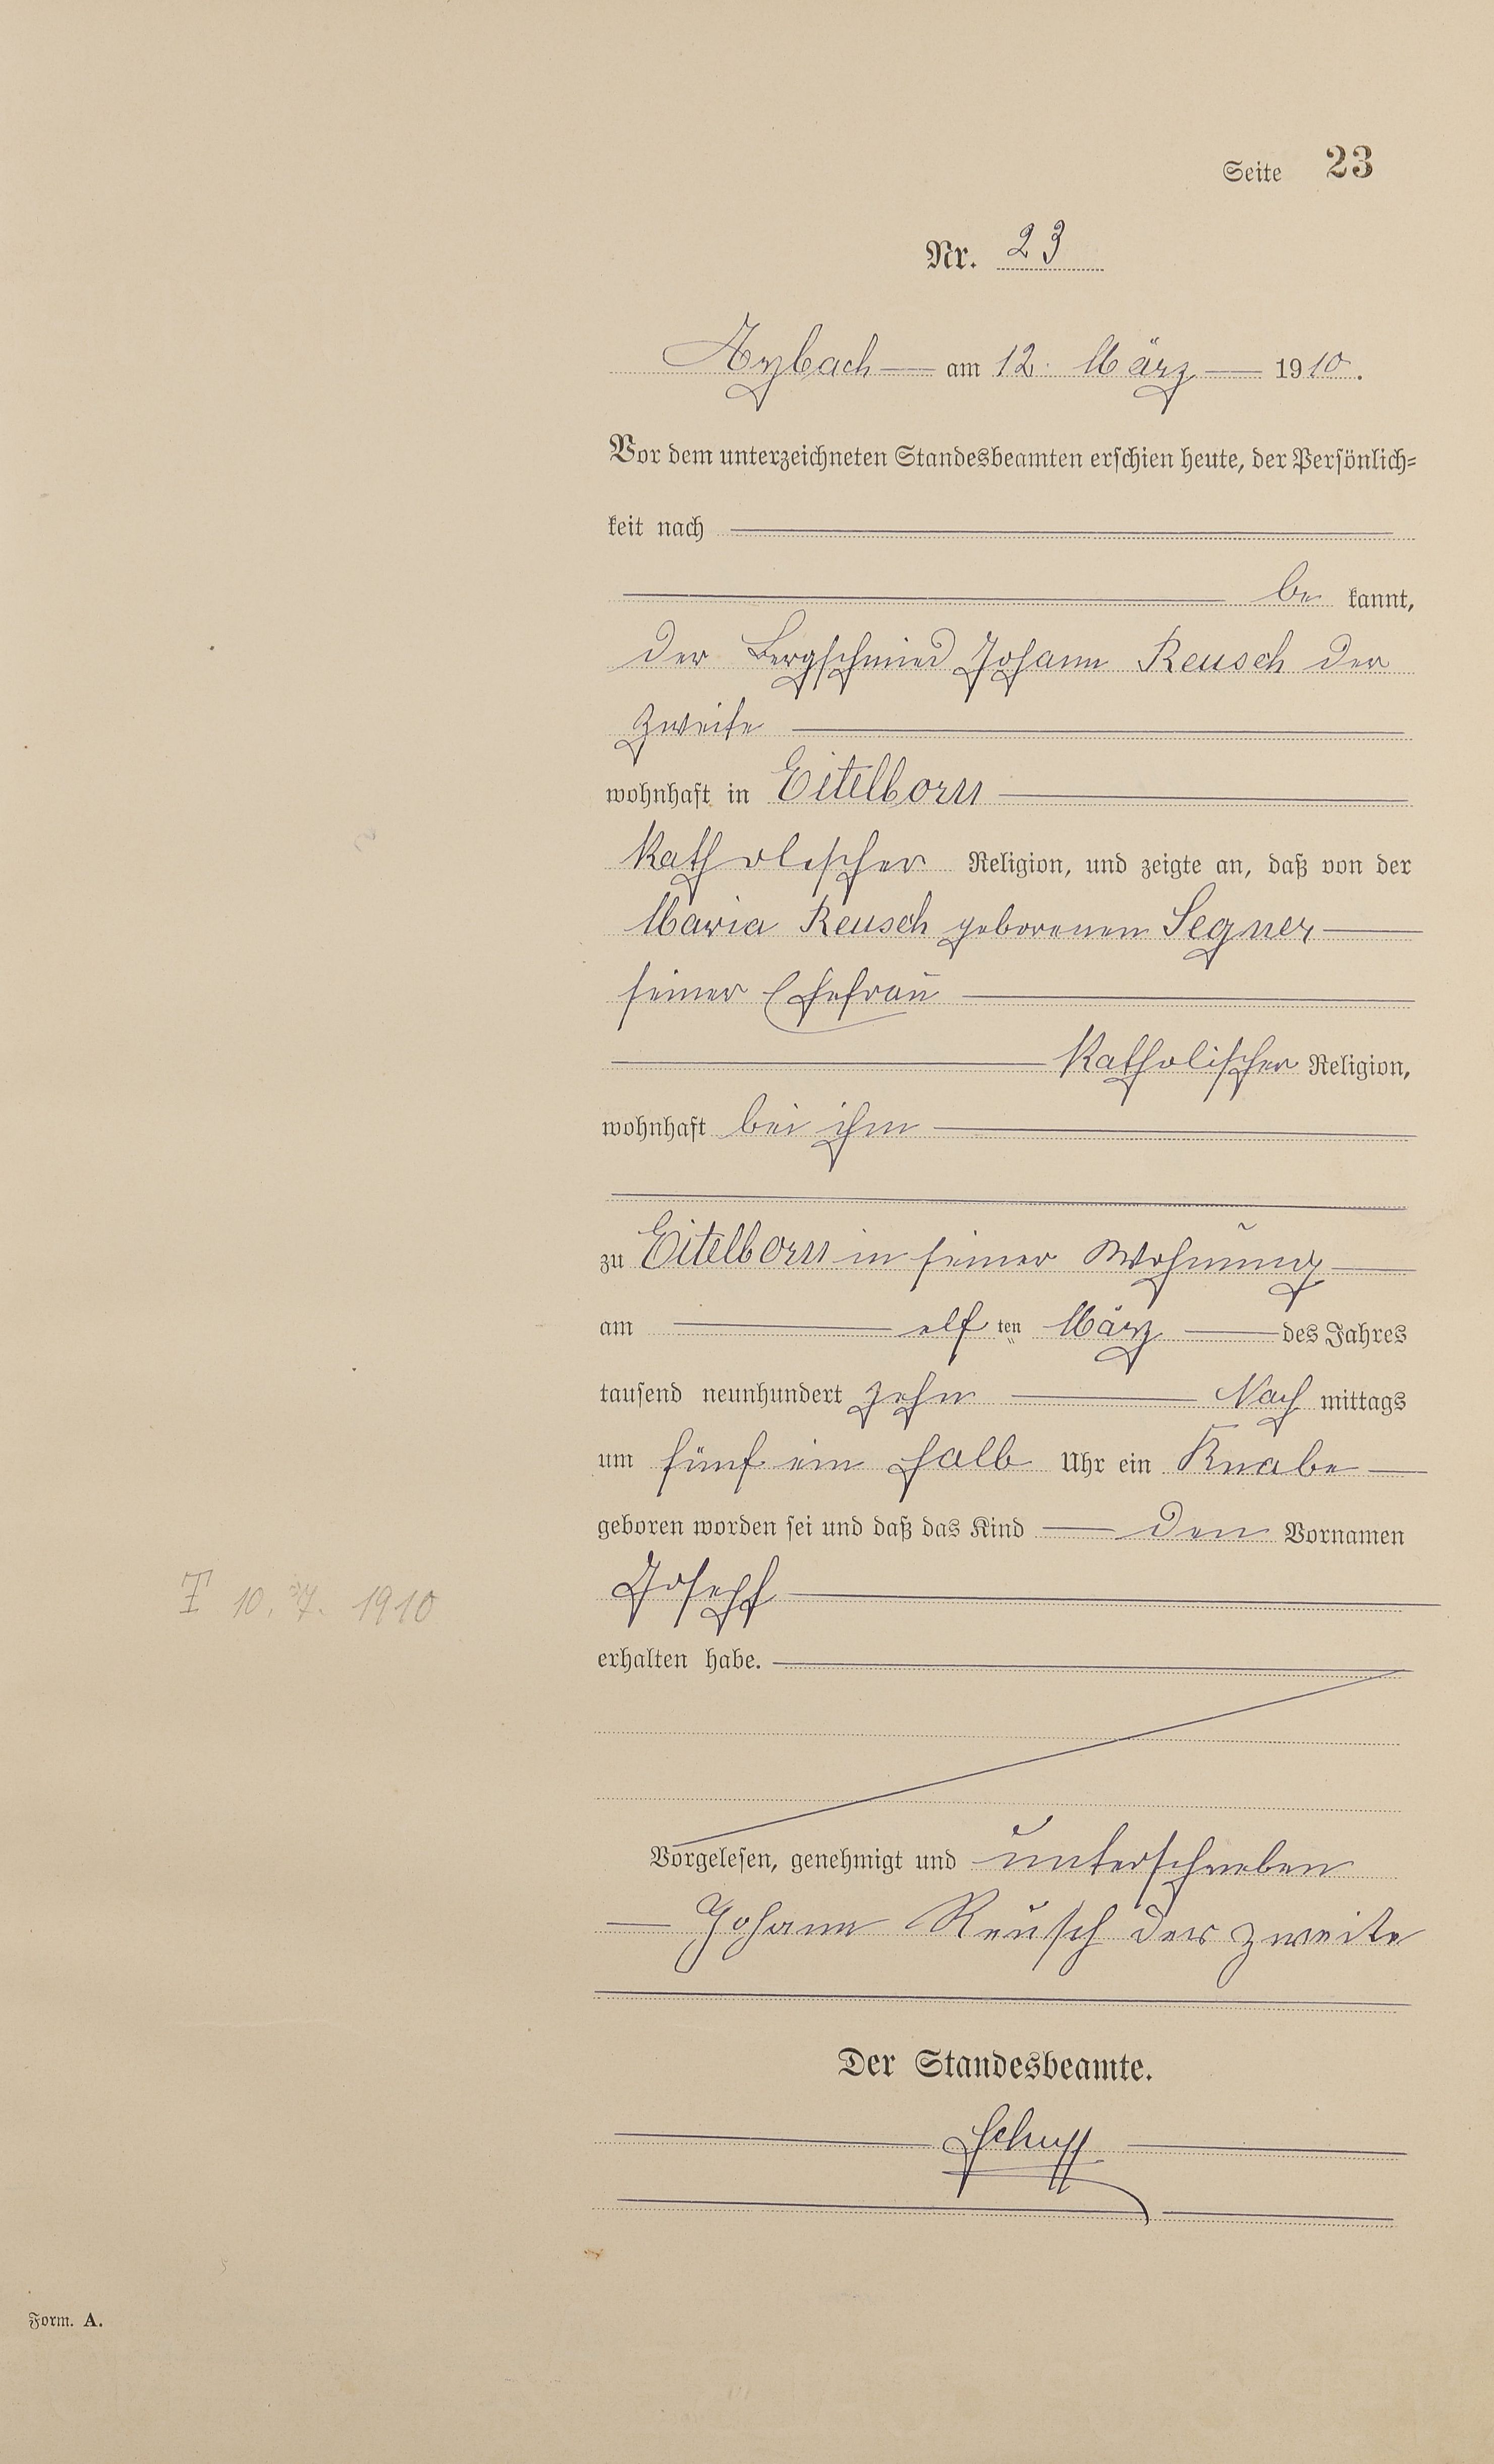 Seite 23
Nr. 23
Arzbach am 12. März 1910.
Vor dem unterzeichneten Standesbeamten erschien heute, der Persönlich-
keit nach
be kannt,
der Bergschmied Johann Reusch der
zweite
wohnhaft in Eitelborn
katholischer Religion, und zeigte an, daß von der
Maria Reusch geborenen Segner
seiner Ehefrau
katholischer Religion,
wohnhaft bei ihm
zu Eitelborn in seiner Wohnung
am elf ten März des Jahres
tausend neunhundert zehn Nach mittags
um fünf ein halb Uhr ein Knabe
geboren worden sei und daß das Kind den Vornamen
Joseph
† 10. 7. 1910
erhalten habe.
Vorgelesen, genehmigt und unterschrieben
Johann Reusch der zweite
Der Standesbeamte.
Form. A.